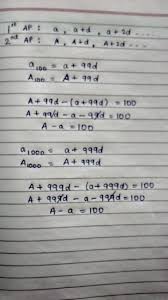 1st AP : a, a+d, a+2d .....
2nd AP : A, A+d, A+2d .....
a100 = a+99d
A100 = A+99d
A+99d-(a+99d) = 100
A+99d-a-99d = 100
A-a = 100
a1000 = a+999d
A1000 = A+999d
A+999d-(a+999d) = 100
A+999d-a-999d = 100
A-a = 100